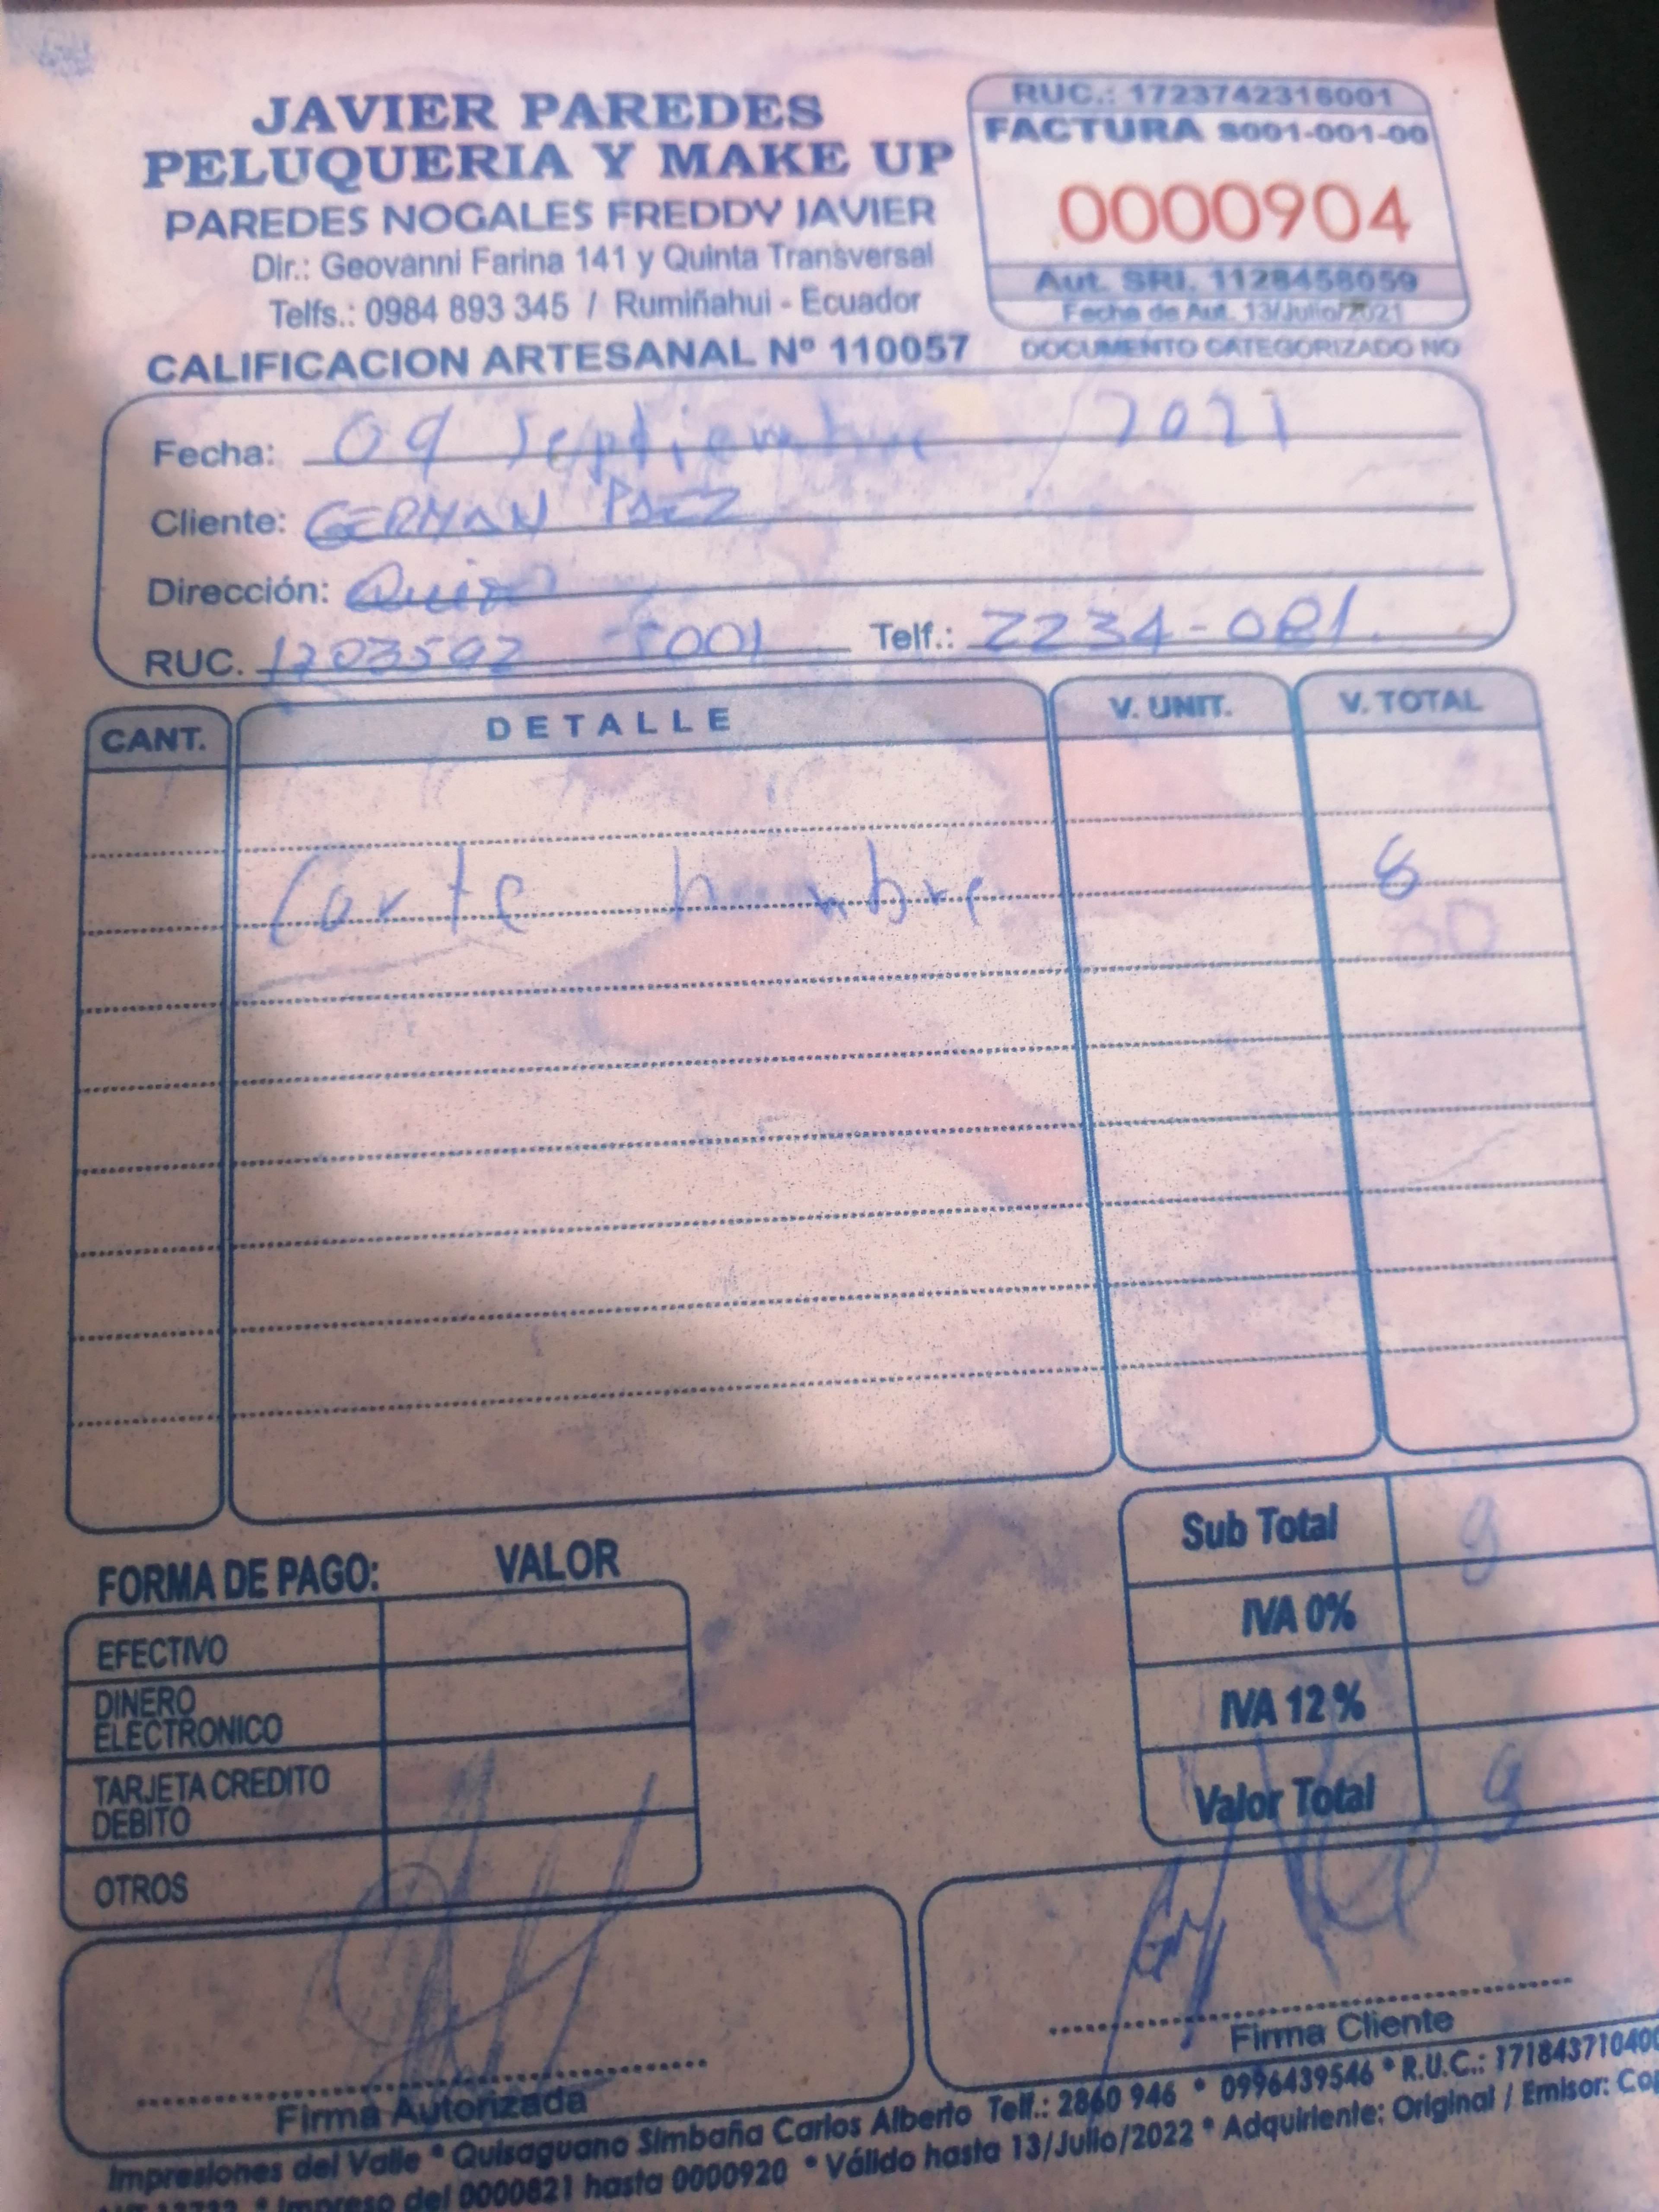 JAVIER PAREDES
PELUQUERIA Y MAKE UP
PAREDES NOGALES FREDDY JAVIER
Dir.: Geovanni Farina 141 y Quinta Transversal
Telfs.: 0984 893 345 / Rumiñahui - Ecuador
CALIFICACION ARTESANAL Nº 110057
RUC.: 1723742316001
FACTURA S001-001-00
0000904
Aut. SRI. 1128458059
Fecha de Aut. 13/Julio/2021
DOCUMENTO CATEGORIZADO NO
Fecha: 09 Septiembre / 2021
Cliente: GERMAN PAEZ
Dirección: Quito
RUC. Telf.: 2234-081
CANT. DETALLE V. UNIT. V. TOTAL
Corte hombre 8
FORMA DE PAGO: VALOR
EFECTIVO
DINERO ELECTRONICO
TARJETA CREDITO DEBITO
OTROS
Sub Total
IVA 0%
IVA 12%
Valor Total
Firma Autorizada
Firma Cliente
Impresiones del Valle * Quisaguano Simbaña Carlos Alberto Telf.: 2860 946 * 0996439546 * R.U.C.: 171843710400
Impreso del 0000821 hasta 0000920 * Válido hasta 13/Julio/2022 * Adquiriente: Original / Emisor: Cop